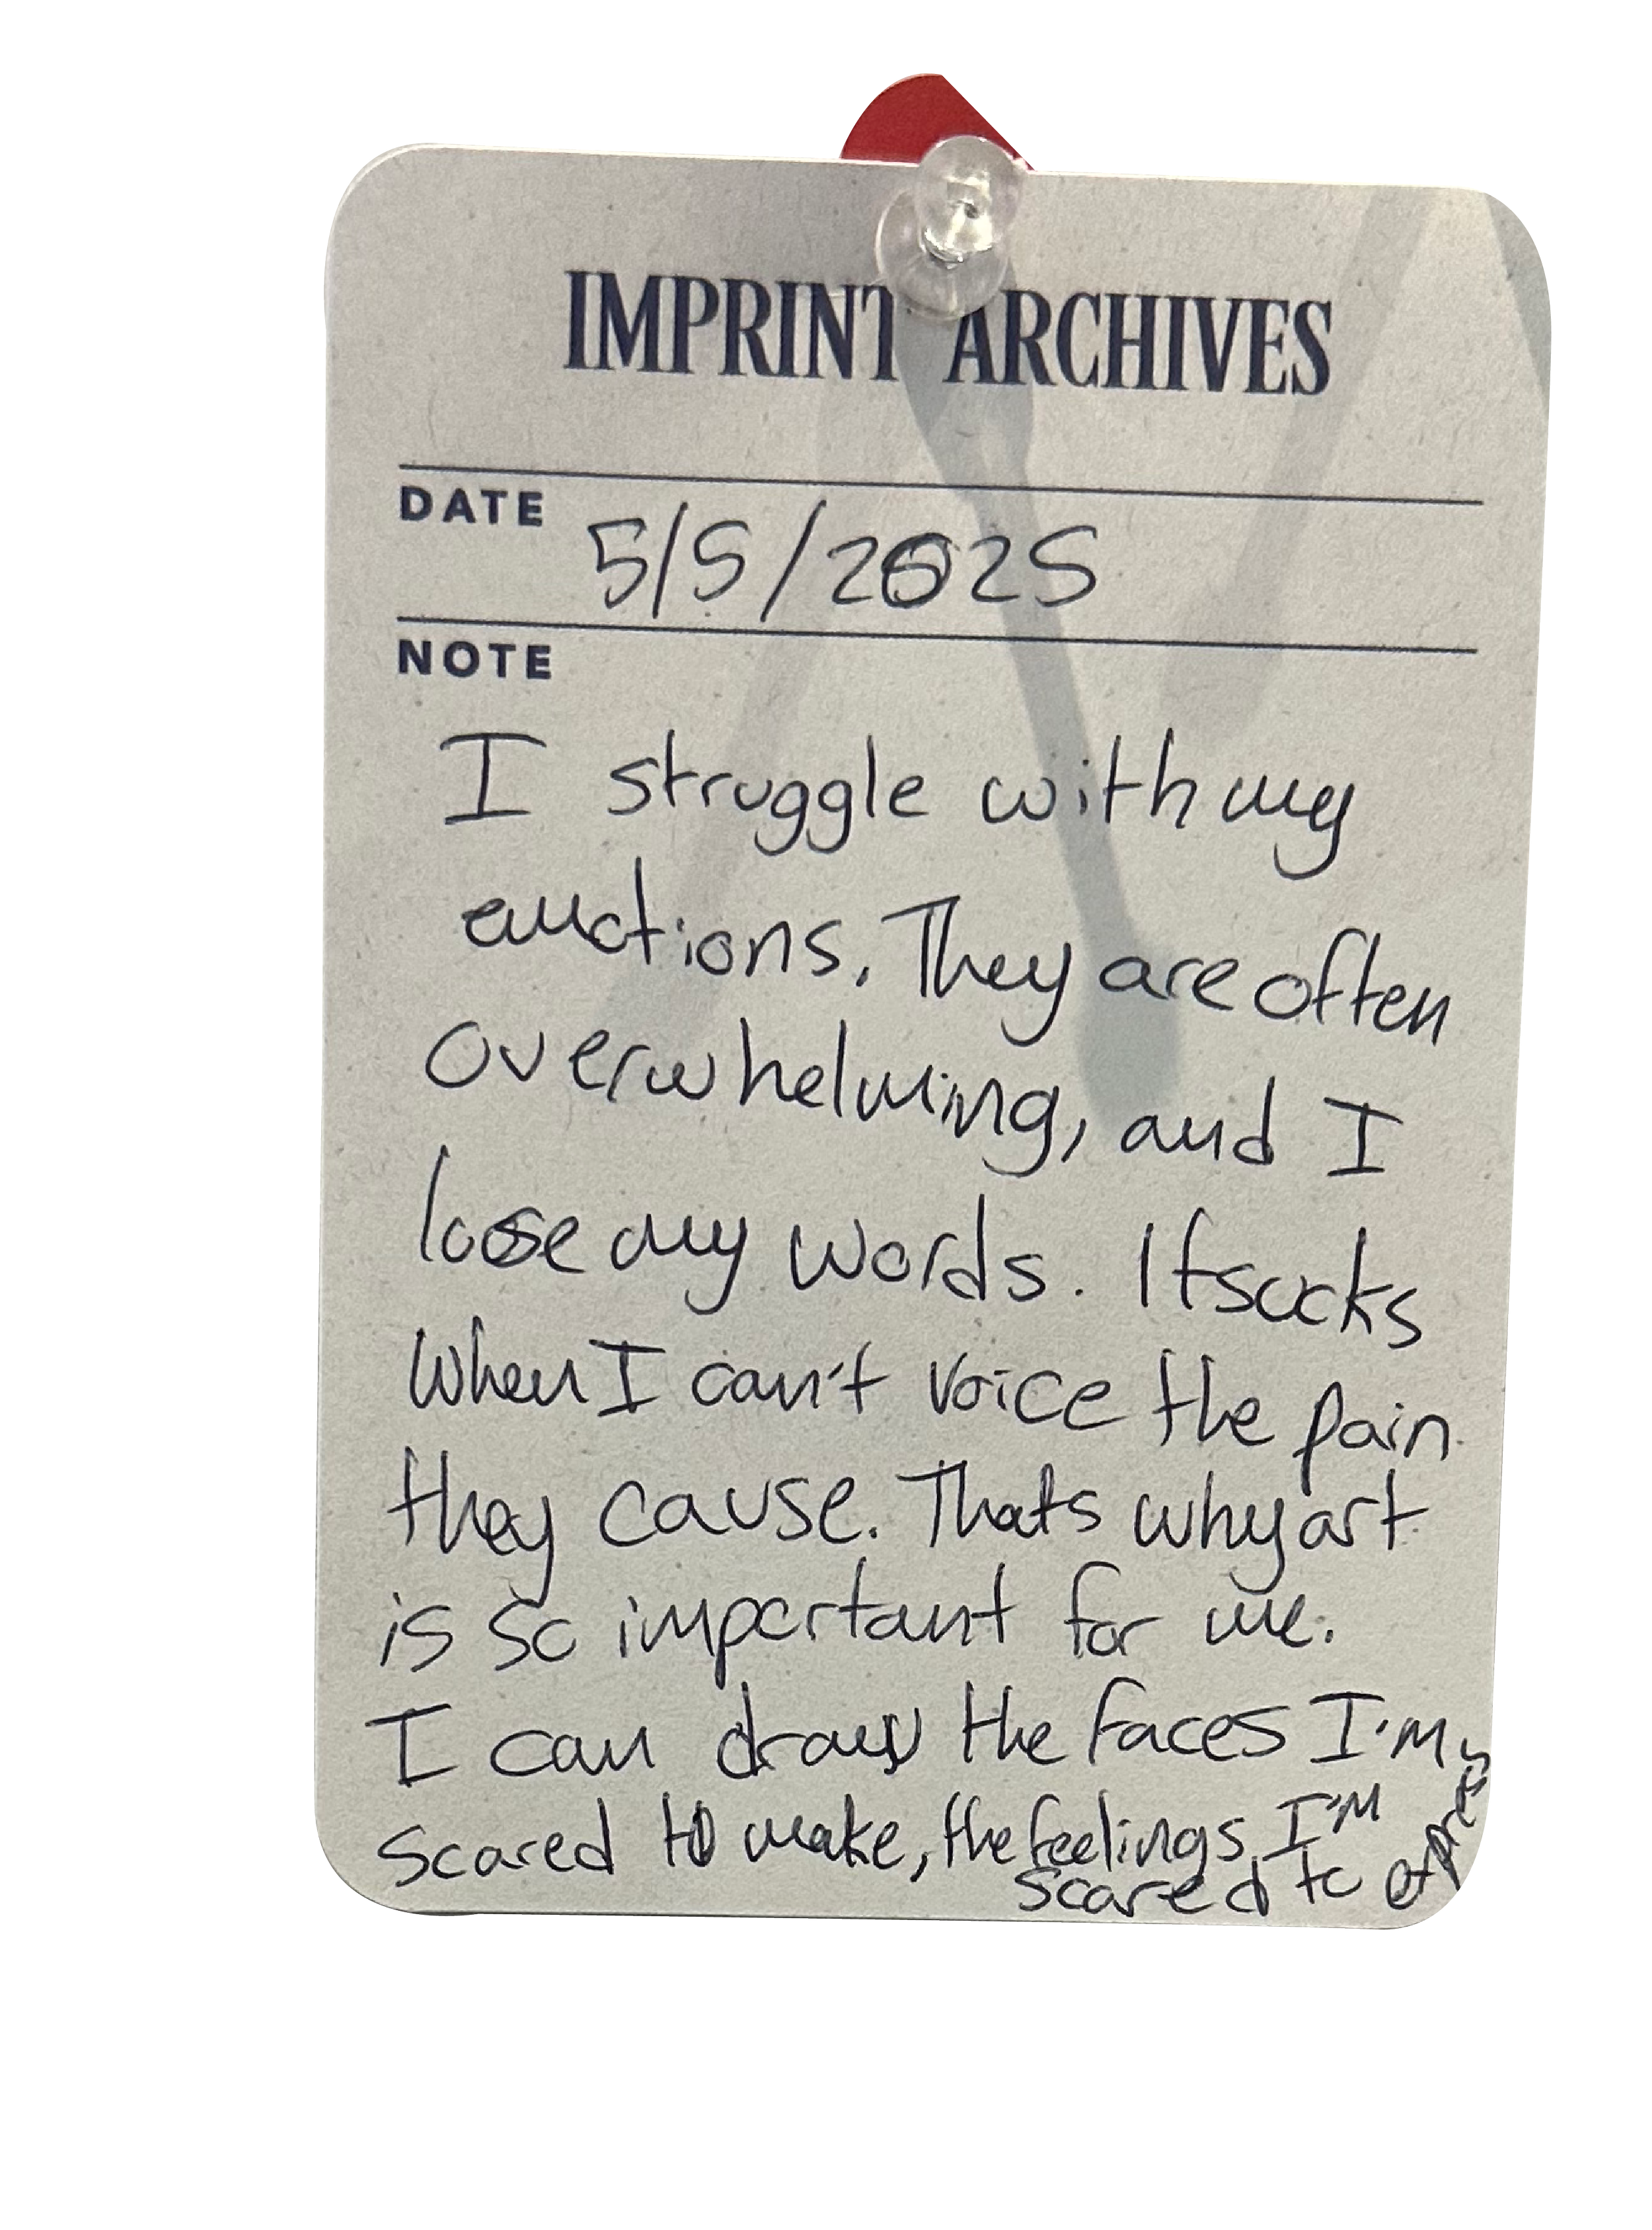 IMPRINT ARCHIVES
DATE 5/5/2025
NOTE
I struggle with my
emotions. They are often
overwhelming, and I
lose my words. It sucks
when I can't voice the pain
they cause. Thats why art
is so important for me.
I can draw the faces I'm
scared to make, the feelings I'm
scared to express